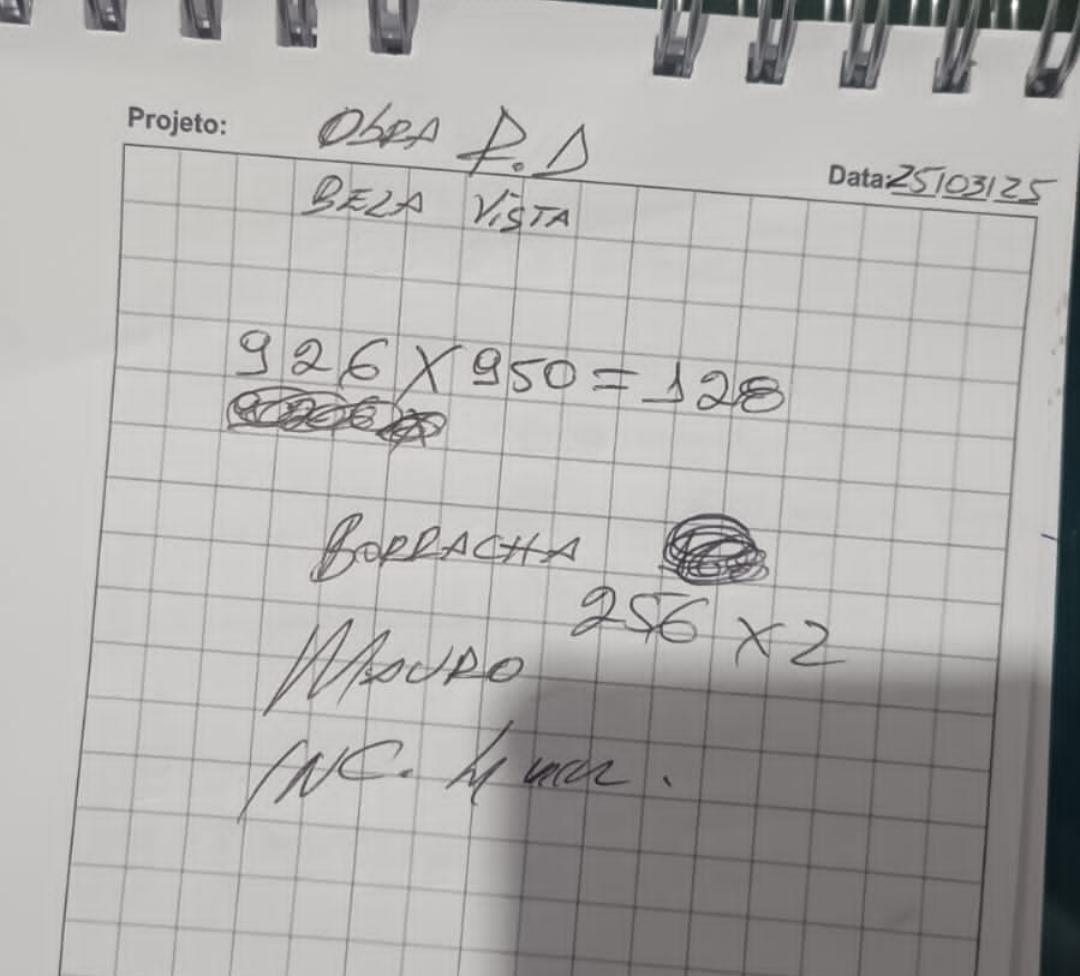 Projeto: ObRA P.D
Data: 25/03/25
BELA VISTA
926 X 950 = 128
BORRACHA
256 X 2
MAURO
INC. 4 mm.